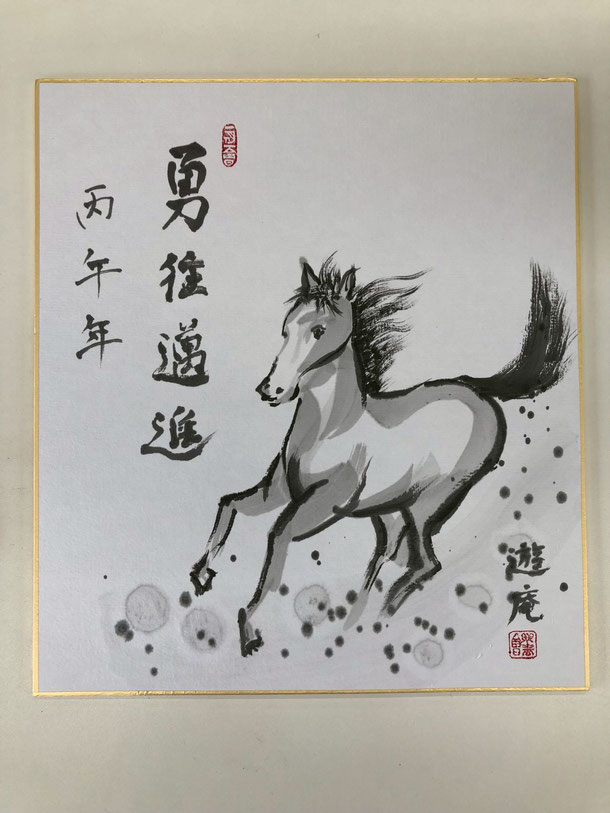 勇往邁進
丙午年
遊庵